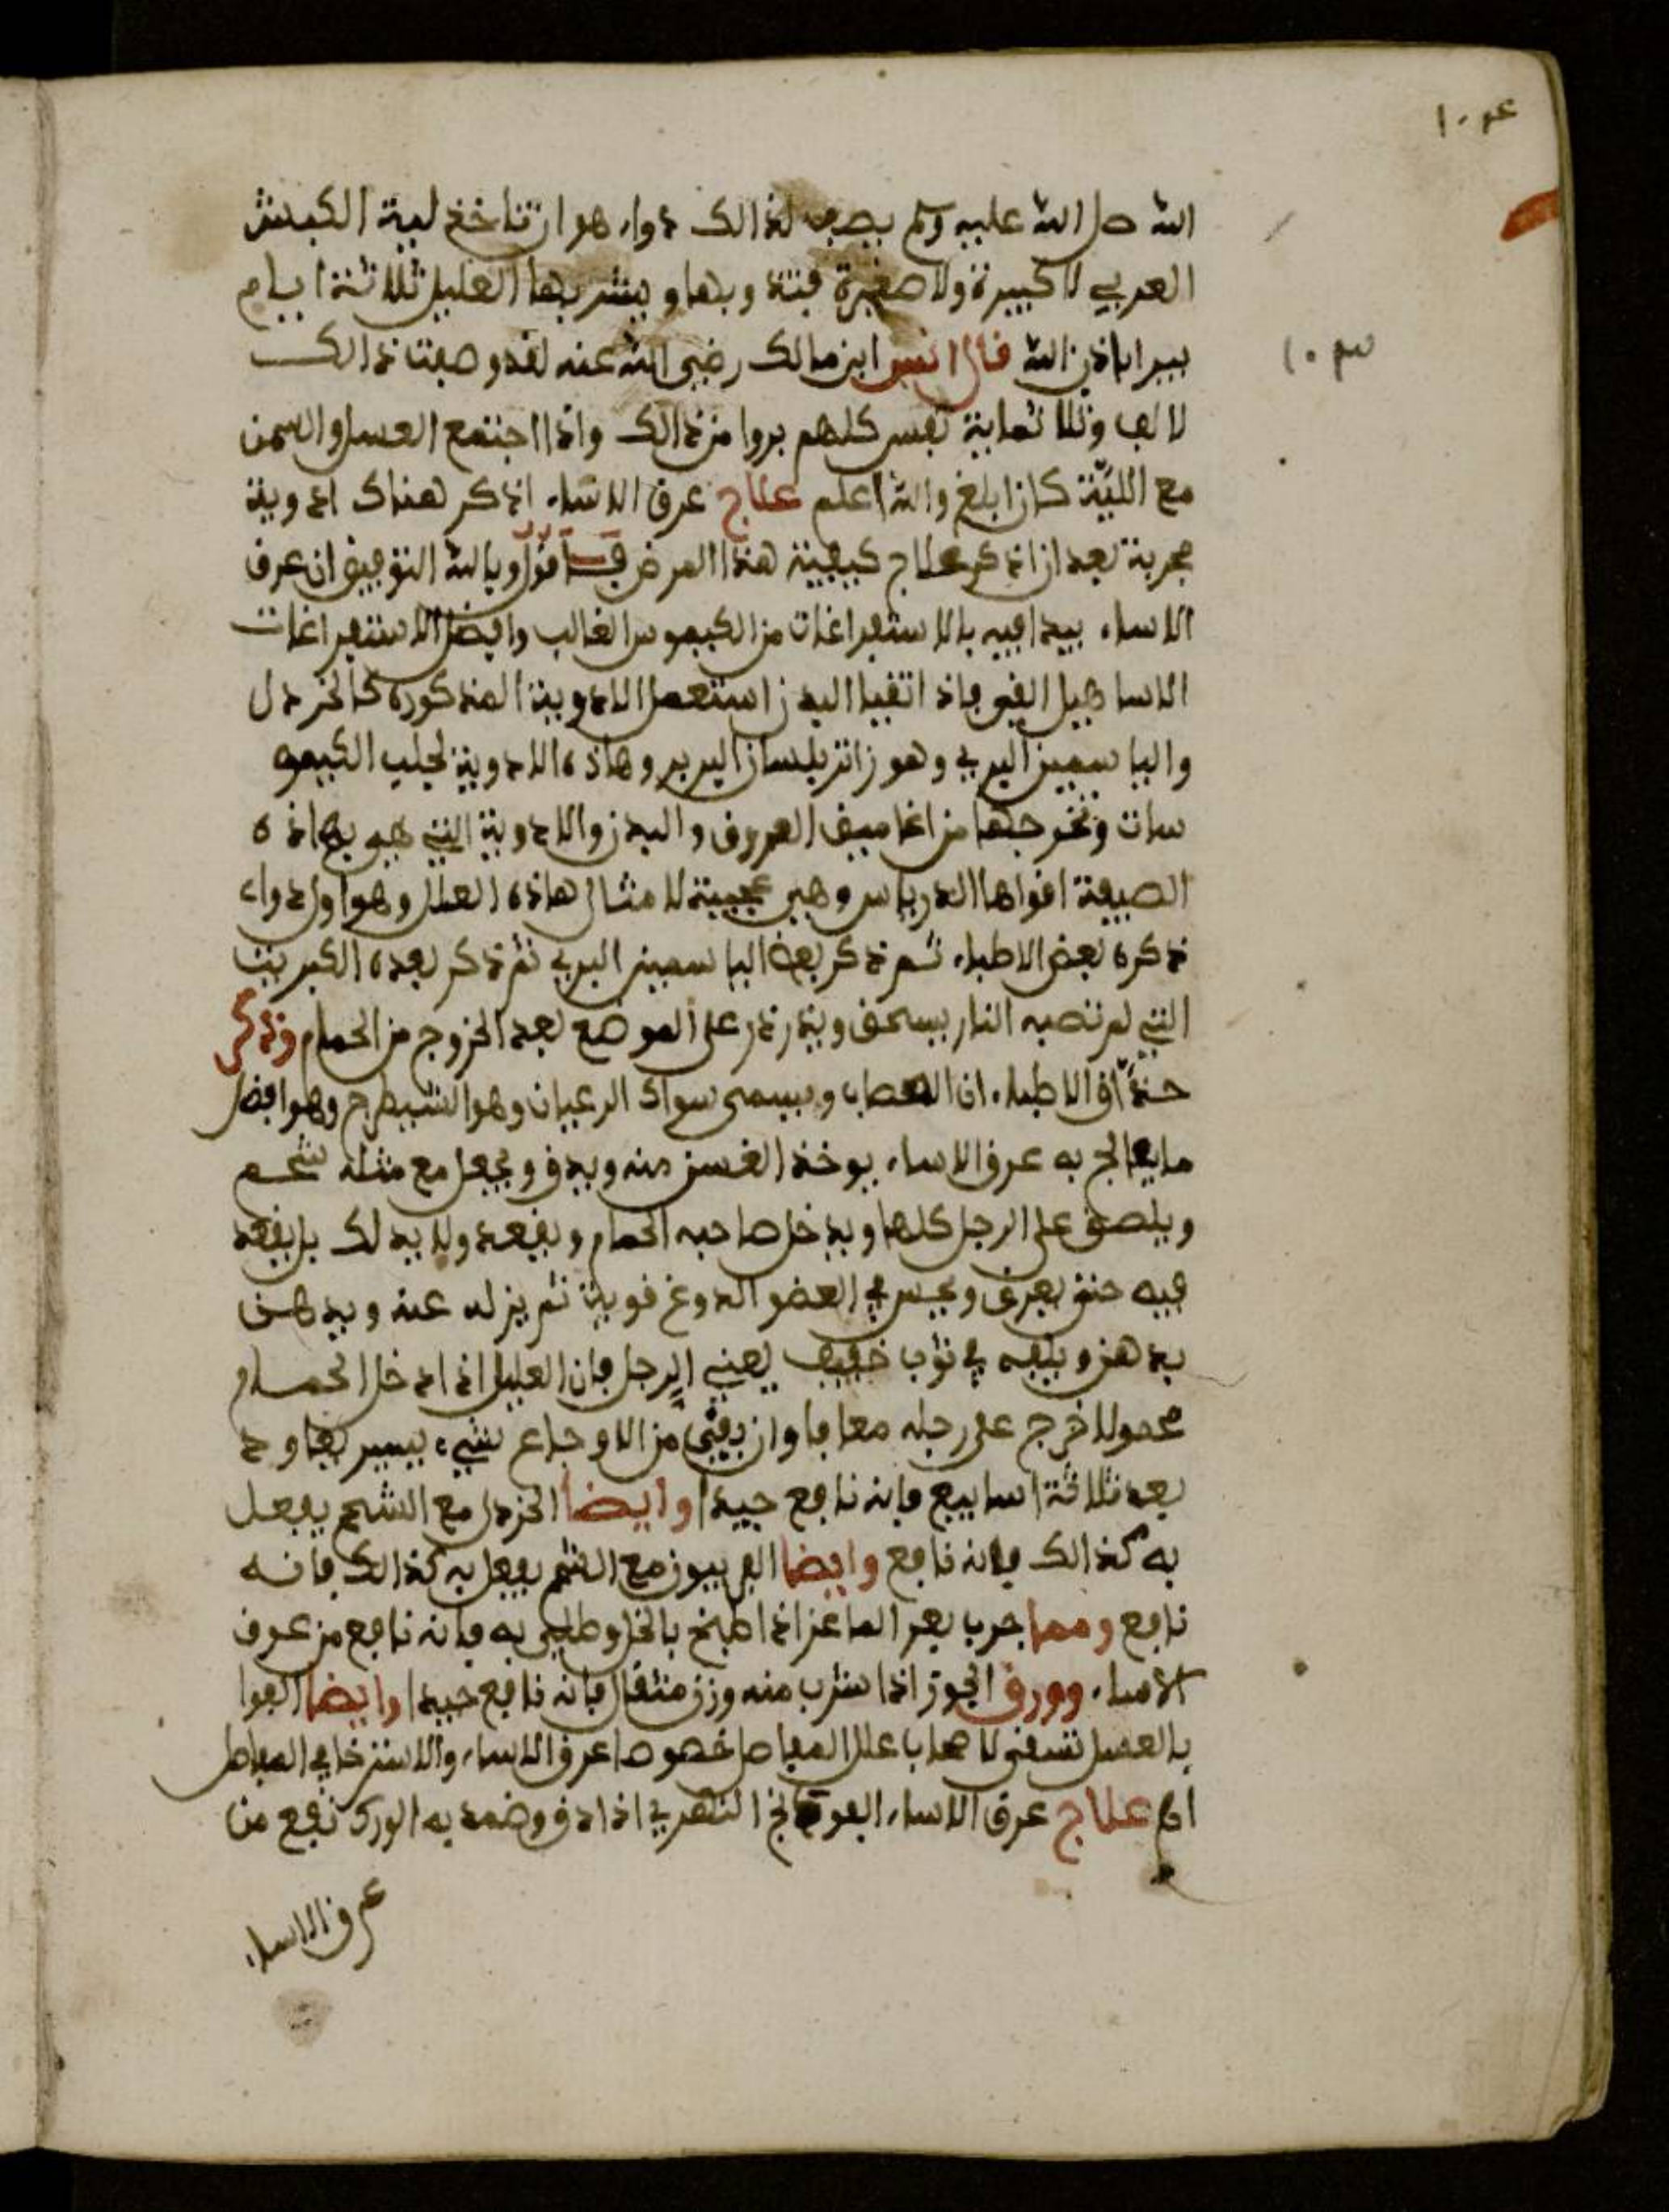 الله صل الله عليه وسلم يصف لذالك دواء هو ان تاخذ لية الكبش
العربي لا كبيرة ولا صغيرة فتذوبها ويشربها العليل ثلاثة ايام
يبرا باذن الله قال انس ابن مالك رضي الله عنه لقد وصفت ذالك
لالف وثلاثماية نفس كلهم بروا من ذالك واذا اجتمع العسل والسمن
مع اللية كان ابلغ والله اعلم علاج عرق الانساء اذكر هناك ادوية
مجربة بعد ان اذكر علاج كيفية هذا المرض فاقول وبالله التوفيق ان عرق
الانساء يبدا فيه بالاستفراغات من الكيموس الغالب وافضل الاستفراغات
الاسا هيل القي فاذا اتقيا البدن استعمل الادوية المذكورة كالخردل
والياسمين البري وهو زانتر بلسان البربر وهاذه الادوية تجلب الكيمو
سات وتخرجها من اغاميق العروق والبدن والادوية التي هي بهاذه
الصيفة اقواها الدرياس وهي عجيبة لامثال هاذه العلل وهو اول دواء
ذكره بعض الاطباء ثم ذكر بعده الياسمين البري ثم ذكر بعده الكبريت
التي لم تصبه النار يسحق ويذر ذر على الموضع بعد الخروج من الحمام وذكر
حذاق الاطباء ان العصاب ويسمى سواك الرعيان وهو الشيطرج وهو افضل
ما يعالج به عرق الانساء يوخذ الغسن منه ويدق ويجعل مع مثله شحم
ويلصق على الرجل كلها ويدخل صاحبه الحمام ويقعد ولا يدلك بل يقعد
فيه حتى يعرق ويحس في العضو الدوغ قوية ثم يزله عنه ويدهن
بدهن ويلفه في ثوب خفيف يعني الرجل فان العليل اذا دخل الحمام
محمولا خرج على رجله معافا وان بقي من الاوجاع شيء يسير يعاود
بعد ثلاثة اسابيع فانه نافع جيدا وايضا الخردل مع الشحم يفعل
به كذالك فانه نافع وايضا الفربيون مع الشحم يفعل به كذالك فانه
نافع ومما جرب بعر الماعز اذا طبخ بالخل وطلي به فانه نافع من عرق
الانساء وورق الجوز اذا شرب منه وزن مثقال فانه نافع جيدا وايضا الفوا
بالعسل تسقى لاصحاب علل المفاصل خصوصا عرق الانساء والاسترخا في المفاصل
اه علاج عرق الانساء الفوتانج النهري اذا دق وضمد به الورك نفع من
عرق الانساء